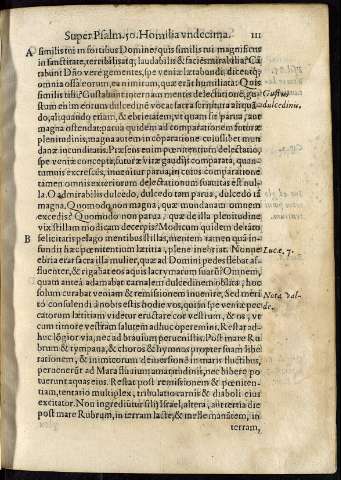 Super Psalm. 50. Homilia vndecima. 111
A similis tui in fortibus Domine, quis similis tui magnificus
in sanctitate, terribilis atq; laudabilis & faciēs mirabilia? Cā
tabunt Dño verè gementes, spe veniæ lætabundi, dicentq;
omnia ossa eorum, ea nimirum, quæ erāt humiliata: Quis
similis tibi? Gustabunt internam mentis delectationē, gu-
stum enim eorum dulcedinē vocat sacra scriptura aliquā
do, aliquando etiam, & ebrietatem, vt quam sit parua, aut
magna ostendat, parua quidem ad comparationem futuræ
plenitudinis, magna autem in cōparatione cuiuslibet mun
danæ iucunditatis. Præsens enim pœnitentium delectatio,
spe veniæ concepta, futuræ viræ gaudijs comparata, quan-
tumuis excrescās, inuenitur parua, in cuius comparatione
tamen omnis exteriorum delectationum suauitas est nul-
la. O admirabilis dulcedo, dulcedo tam parua, dulcedo tā
magna. Quomodo non magna, quæ mundanam omnem
excedis? Quomodo non parua, quæ de illa plenitudine
vix stillam modicam decerpis? Modicum quidem de tam
B felicitatis pelago mentibus stillas, mentem tamen quā in-
fundis hac pœnitentium lætitia, plene inebrias. Nonne
ebria erat sacra illa mulier, quæ ad Domini pedes flebat af-
fluenter, & rigabat eos aquis lacrymarum suarū? Omnem,
quam anteà adamabat carnalem dulcedinem oblita, hoc
solum curabat veniam & remissionem inuenire. Sed meri
tò consulendi à nobis estis hodie vos, quasi spe veniæ pec-
catorum lætitiam videtur eructare cor vestrum, & os, ve
cum timore vestrām salutem adhuc operemini. Restat ad-
huc lōgior via, nec ad brauium peruenistis. Post mare Ru
brum & tympana, & choros & hymnos propter suam libe
rationem, & inimicorum demersionē in maris fluctibus,
peruenerūt ad Mara fluuium amaritudinis, nec bibere po
tuerunt aquas eius. Restat post remissionem & pœniten-
tiam, tentatio multiplex, tribulatio carnis & diaboli eius
excitator. Non ingrediūtur filij Israel, altera, aut tertia die
post mare Rubrum, in terram lacte, & melle manātem, in
terram,
Gustus
dulcedinis.
Lucæ, 7.
Nota dul-